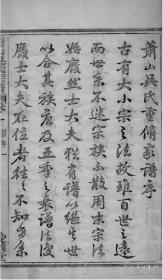 蕭山吳氏重修家譜序
古有大小宗之法故雖百世之遠
而世系不迷宗族不散周末宗法
始廢然士大夫猶有譜以繼生世
以合其族君及五季之衰譜法復
廢士大夫在位者往之不知其系